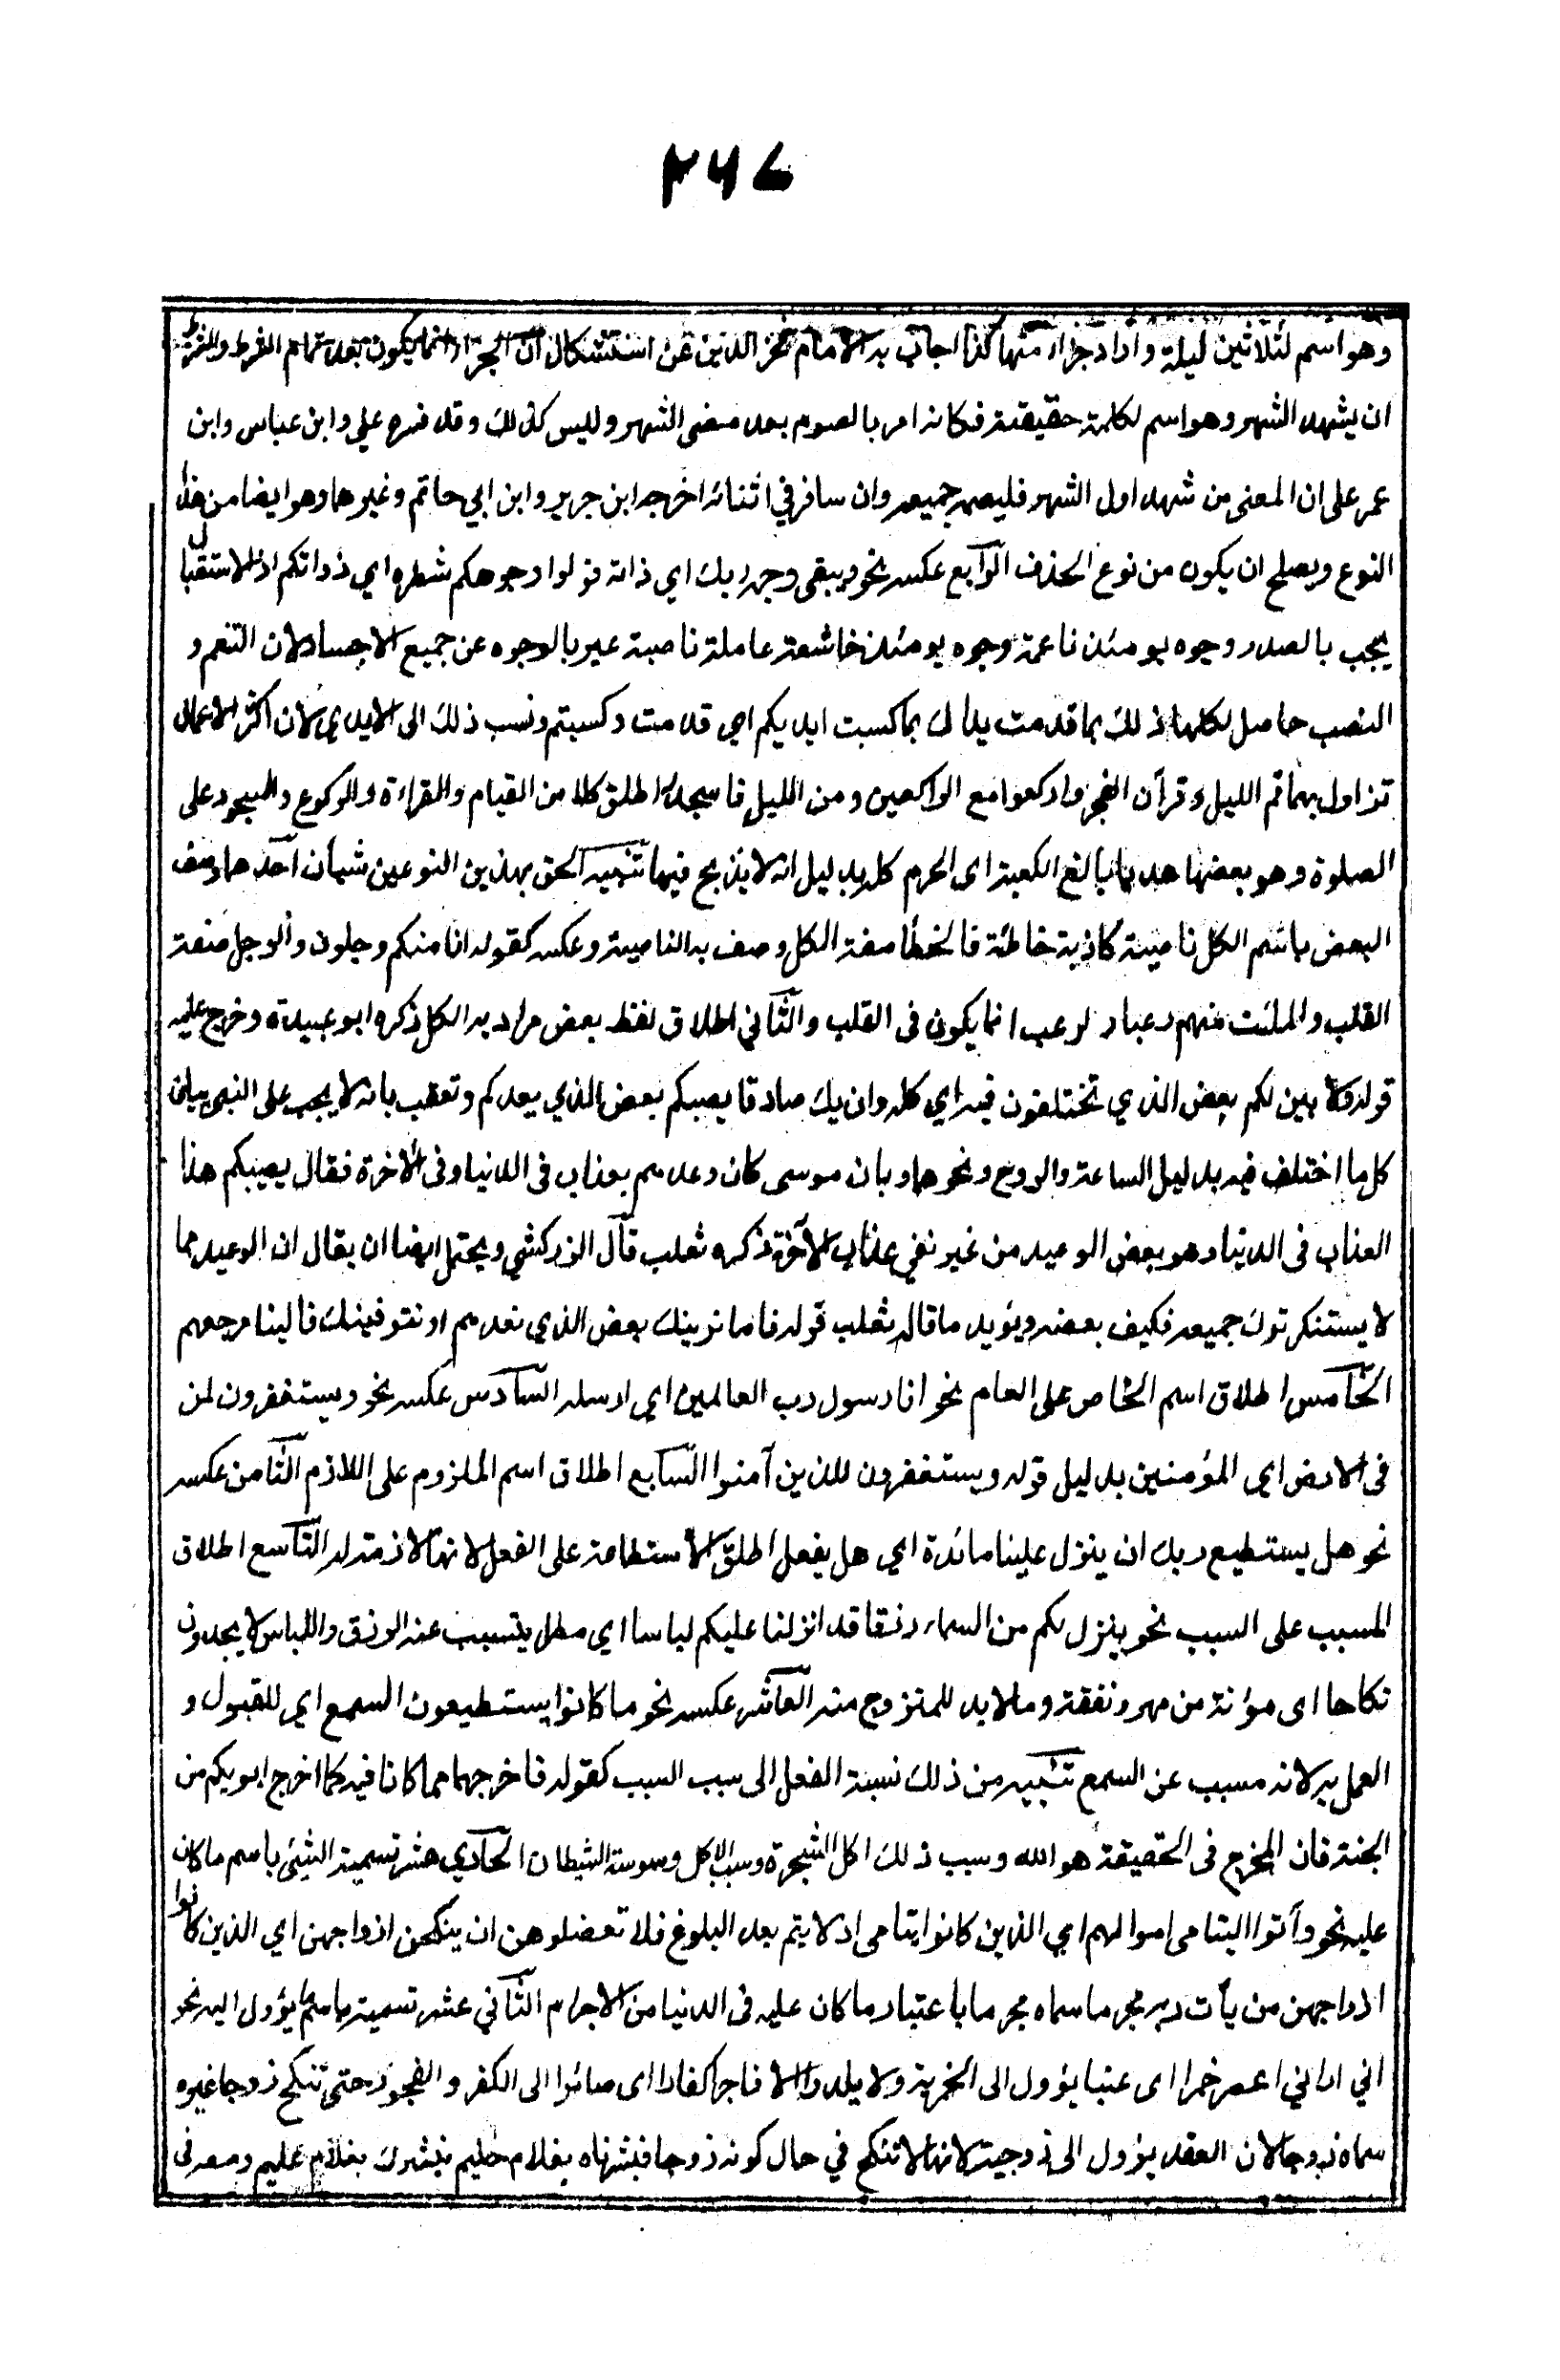 ۳۶۷
وهو اسم لثلاثين ليلة واراد جزاء منها كذا اجاب به الامام فخر الدين عن استشكال ان الجزاء انما يكون بعد تمام الشرط والشرط
ان يشهد الشهر وهو اسم لكله حقيقة فكانه امر بالصوم بعد مضى الشهر وليس كذلك وقد فسره علي وابن عباس وابن
عمر على ان المعنى من شهد اول الشهر فليصمه جميعه وان سافر في اثنائه اخرجه ابن جرير وابن ابي حاتم وغيرهما وهو ايضا من هذا
النوع ويصلح ان يكون من نوع الحذف الرابع عكسه نحو ويبقى وجه ربك اي ذاته فولوا وجوهكم شطره اي ذواتكم اذ الاستقبال
يجب بالصدر وجوه يومئذ ناعمة وجوه يومئذ خاشعة عاملة ناصبة عبر بالوجوه عن جميع الاجساد لان التنعم و
النصب حاصل لكلها ذلك بما قدمت يداك بما كسبت ايديكم اي قدمت وكسبتم ونسب ذلك الى الايدي لان اكثر الاعمال
تزاول بهما قم الليل وقرآن الفجر واركعوا مع الراكعين ومن الليل فاسجد له اطلق كلا من القيام والقراءة والركوع والسجود على
الصلوة وهو بعضها هديا بالغ الكعبة اى الحرم كله بدليل انه لا يذبح فيها تنبيه الحق بهذين النوعين شيأن احدهما وصف
البعض باسم الكل ناصية كاذبة خاطئة فالخطأ صفة الكل وصف به الناصية وعكسه كقوله انا منكم وجلون والوجل صفة
القلب ولملئت منهم رعبا والرعب انما يكون فى القلب والثاني اطلاق لفظ بعض مراد به الكل ذكره ابو عبيدة وخرج عليه
قوله ولأبين لكم بعض الذي تختلفون فيه اي كله وان يك صادقا يصبكم بعض الذي يعدكم وتعقب بانه لا يجب على النبي بيان
كل ما اختلف فيه بدليل الساعة والروح ونحوها وبان موسى كان وعدهم بعذاب فى الدنيا وفى الآخرة فقال يصيبكم هذا
العذاب فى الدنيا وهو بعض الوعيد من غير نفي عذاب الآخرة ذكره ثعلب قال الزركشي ويحتمل ايضا ان يقال ان الوعيد مما
لا يستنكر ترك جميعه فكيف بعضه ويؤيد ما قاله ثعلب قوله فاما نرينك بعض الذي نعدهم او نتوفينك فالينا مرجعهم
الخامس اطلاق اسم الخاص على العام نحو انا رسول رب العالمين اي ارسله السادس عكسه نحو ويستغفرون لمن
فى الارض اي المؤمنين بدليل قوله ويستغفرون للذين آمنوا السابع اطلاق اسم الملزوم على اللازم الثامن عكسه
نحو هل يستطيع ربك ان ينزل علينا مائدة اي هل يفعل اطلق الاستطاعة على الفعل لانها لازمة له التاسع اطلاق
المسبب على السبب نحو ينزل لكم من السماء رزقا قد انزلنا عليكم لباسا اي مطرا يتسبب عنه الرزق واللباس لا يجدون
نكاحا اى مؤنة من مهر ونفقة وما لا بد للمتزوج منه العاشر عكسه نحو ما كانوا يستطيعون السمع اي للقبول و
العمل به لانه مسبب عن السمع تنبيه من ذلك نسبة الفعل الى سبب السبب كقوله فاخرجهما مما كانا فيه كما اخرج ابويكم من
الجنة فان المخرج فى الحقيقة هو الله وسبب ذلك اكل الشجرة وسبب الاكل وسوسة الشيطان الحادي عشر تسمية الشيئ باسم ما كان
عليه نحو وآتوا اليتامى اموالهم اي الذين كانوا يتامى اذ لا يتم بعد البلوغ فلا تعضلوهن ان ينكحن ازواجهن اي الذين كانوا
ازواجهن من يأت ربه مجرما سماه مجرما باعتبار ما كان عليه فى الدنيا من الاجرام الثاني عشر تسميته باسم ما يؤول اليه نحو
اني اراني اعصر خمرا اى عنبا يؤول الى الخمرية ولا يلدوا الا فاجرا كفارا اى صائرا الى الكفر والفجور حتى تنكح زوجا غيره
سماه زوجا لان العقد يؤول الى زوجيته لانها لا تنكح في حال كونه زوجا فبشرناه بغلام حليم نبشرك بغلام عليم وصفه فى